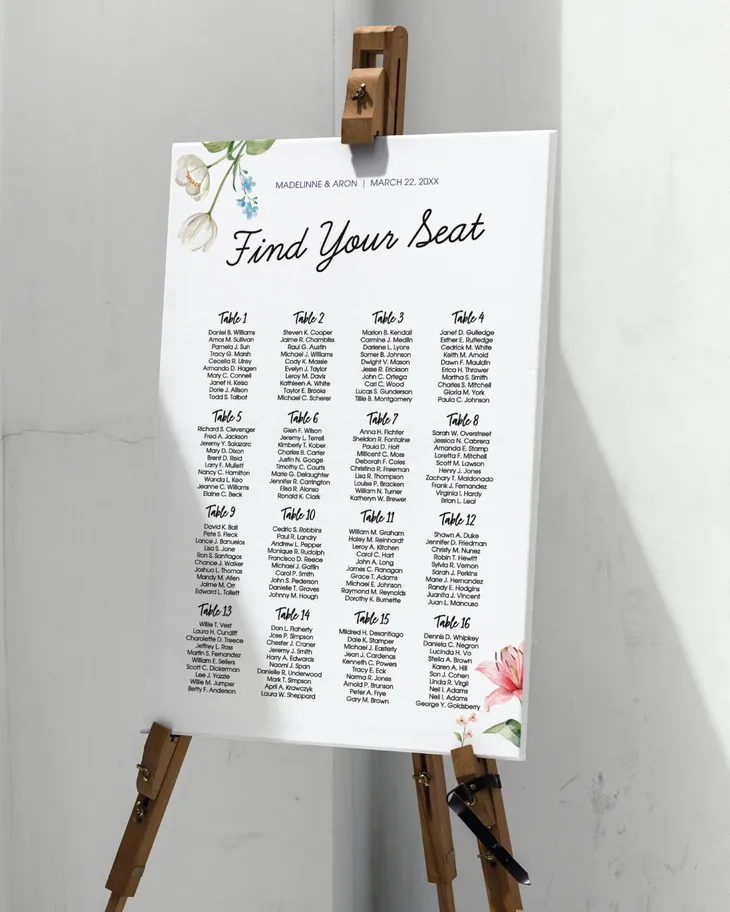 MADELINNE & ARON | MARCH 22, 20XX
Find Your Seat
Table 1
Daniel B. Williams
Amos M. Sullivan
Pamela J. Sun
Tracy G. Marsh
Cecelia R. Utrey
Armando D. Hagen
Mary C. Connell
Janet H. Kelso
Dorie J. Allison
Todd S. Talbot
Table 2
Steven K. Cooper
Jaime R. Chambliss
Raul G. Austin
Michael J. Williams
Cody K. Massie
Evelyn J. Taylor
Leroy M. Davis
Kathleen A. White
Taylor E. Brooks
Michael C. Scherer
Table 3
Marion B. Kendall
Carmine J. Medlin
Darlene L. Lyons
Somer B. Johnson
Dwight V. Mason
Jesse R. Erickson
John C. Ortega
Carl C. Wood
Lucas S. Gunderson
Tillie B. Montgomery
Table 4
Janet D. Gulledge
Esther E. Rutledge
Cedrick M. White
Keith M. Arnold
Dawn F. Mauldin
Erica H. Thrower
Martha S. Smith
Charles S. Mitchell
Gloria M. York
Paula C. Johnson
Table 5
Richard S. Clevenger
Fred A. Jackson
Jeremy Y. Salazarc
Mary D. Dixon
Brent D. Reid
Larry F. Mullett
Nancy C. Hamilton
Wanda L. Keo
Jeanne C. Williams
Elaine C. Beck
Table 6
Glen F. Wilson
Jeremy L. Terrell
Kimberly T. Kober
Charles B. Carter
Justin N. Googe
Timothy C. Courts
Marie G. Delaughter
Jennifer R. Carrington
Elisa R. Alonso
Ronald K. Clark
Table 7
Anna H. Fichter
Sheldon R. Fontaine
Paula D. Holt
Millicent C. Moss
Deborah F. Coles
Christina R. Freeman
Lisa R. Thompson
Louise P. Bracken
William N. Turner
Katheryn W. Brewer
Table 8
Sarah W. Overstreet
Jessica N. Cabrera
Amanda E. Stamp
Loretta F. Mitchell
Scott M. Lawson
Henry J. Jones
Zachary T. Maldonado
Frank J. Fernandez
Virginia I. Hardy
Brian L. Leal
Table 9
David K. Ball
Pete S. Fleck
Lance J. Banuelos
Lisa S. Jone
Ron S. Santiagos
Chance J. Walker
Joshua L. Thomas
Mandy M. Allen
Jaime M. Orr
Edward L. Tollett
Table 10
Cedric S. Robbins
Paul R. Landry
Andrew L. Pepper
Monique R. Rudolph
Francisco D. Reece
Michael J. Gatlin
Carol P. Smith
John S. Pederson
Danielle T. Graves
Johnny M. Hough
Table 11
William M. Graham
Haley M. Reinhardt
Leroy A. Kitchen
Carol C. Hart
John A. Long
James C. Flanagan
Grace T. Adams
Michael E. Johnson
Raymond M. Reynolds
Dorothy K. Burnette
Table 12
Shawn A. Duke
Jennifer D. Friedman
Christy M. Nunez
Robin T. Hewitt
Sylvia R. Vernon
Sarah J. Perkins
Marie J. Hernandez
Randy E. Hodgins
Juanita J. Vincent
Juan L. Mancuso
Table 13
Willie T. Vest
Laura H. Cundiff
Charolette D. Treece
Jeffrey L. Ross
Martin S. Fernandez
William E. Sellers
Scott C. Dickerman
Lee J. Yazzie
Willie M. Jumper
Betty F. Anderson
Table 14
Don L. Flaherty
Jose P. Simpson
Chester J. Craner
Jeremy M. Smith
Harry A. Edwards
Naomi J. Span
Danielle R. Underwood
Mark T. Simpson
April A. Krawczyk
Laura W. Sheppard
Table 15
Mildred H. Desantiago
Dale K. Stamper
Michael J. Easterly
Jean J. Cardenas
Kenneth C. Powers
Tracy E. Eck
Norma R. Jones
Arnold P. Brunson
Peter A. Frye
Gary M. Brown
Table 16
Dennis D. Whipkey
Daniela C. Negron
Lucinda H. Vo
Stella A. Brown
Karen A. Hill
Son J. Cohen
Linda R. Virgil
Neil I. Adams
Neil I. Adams
George Y. Goldsberry